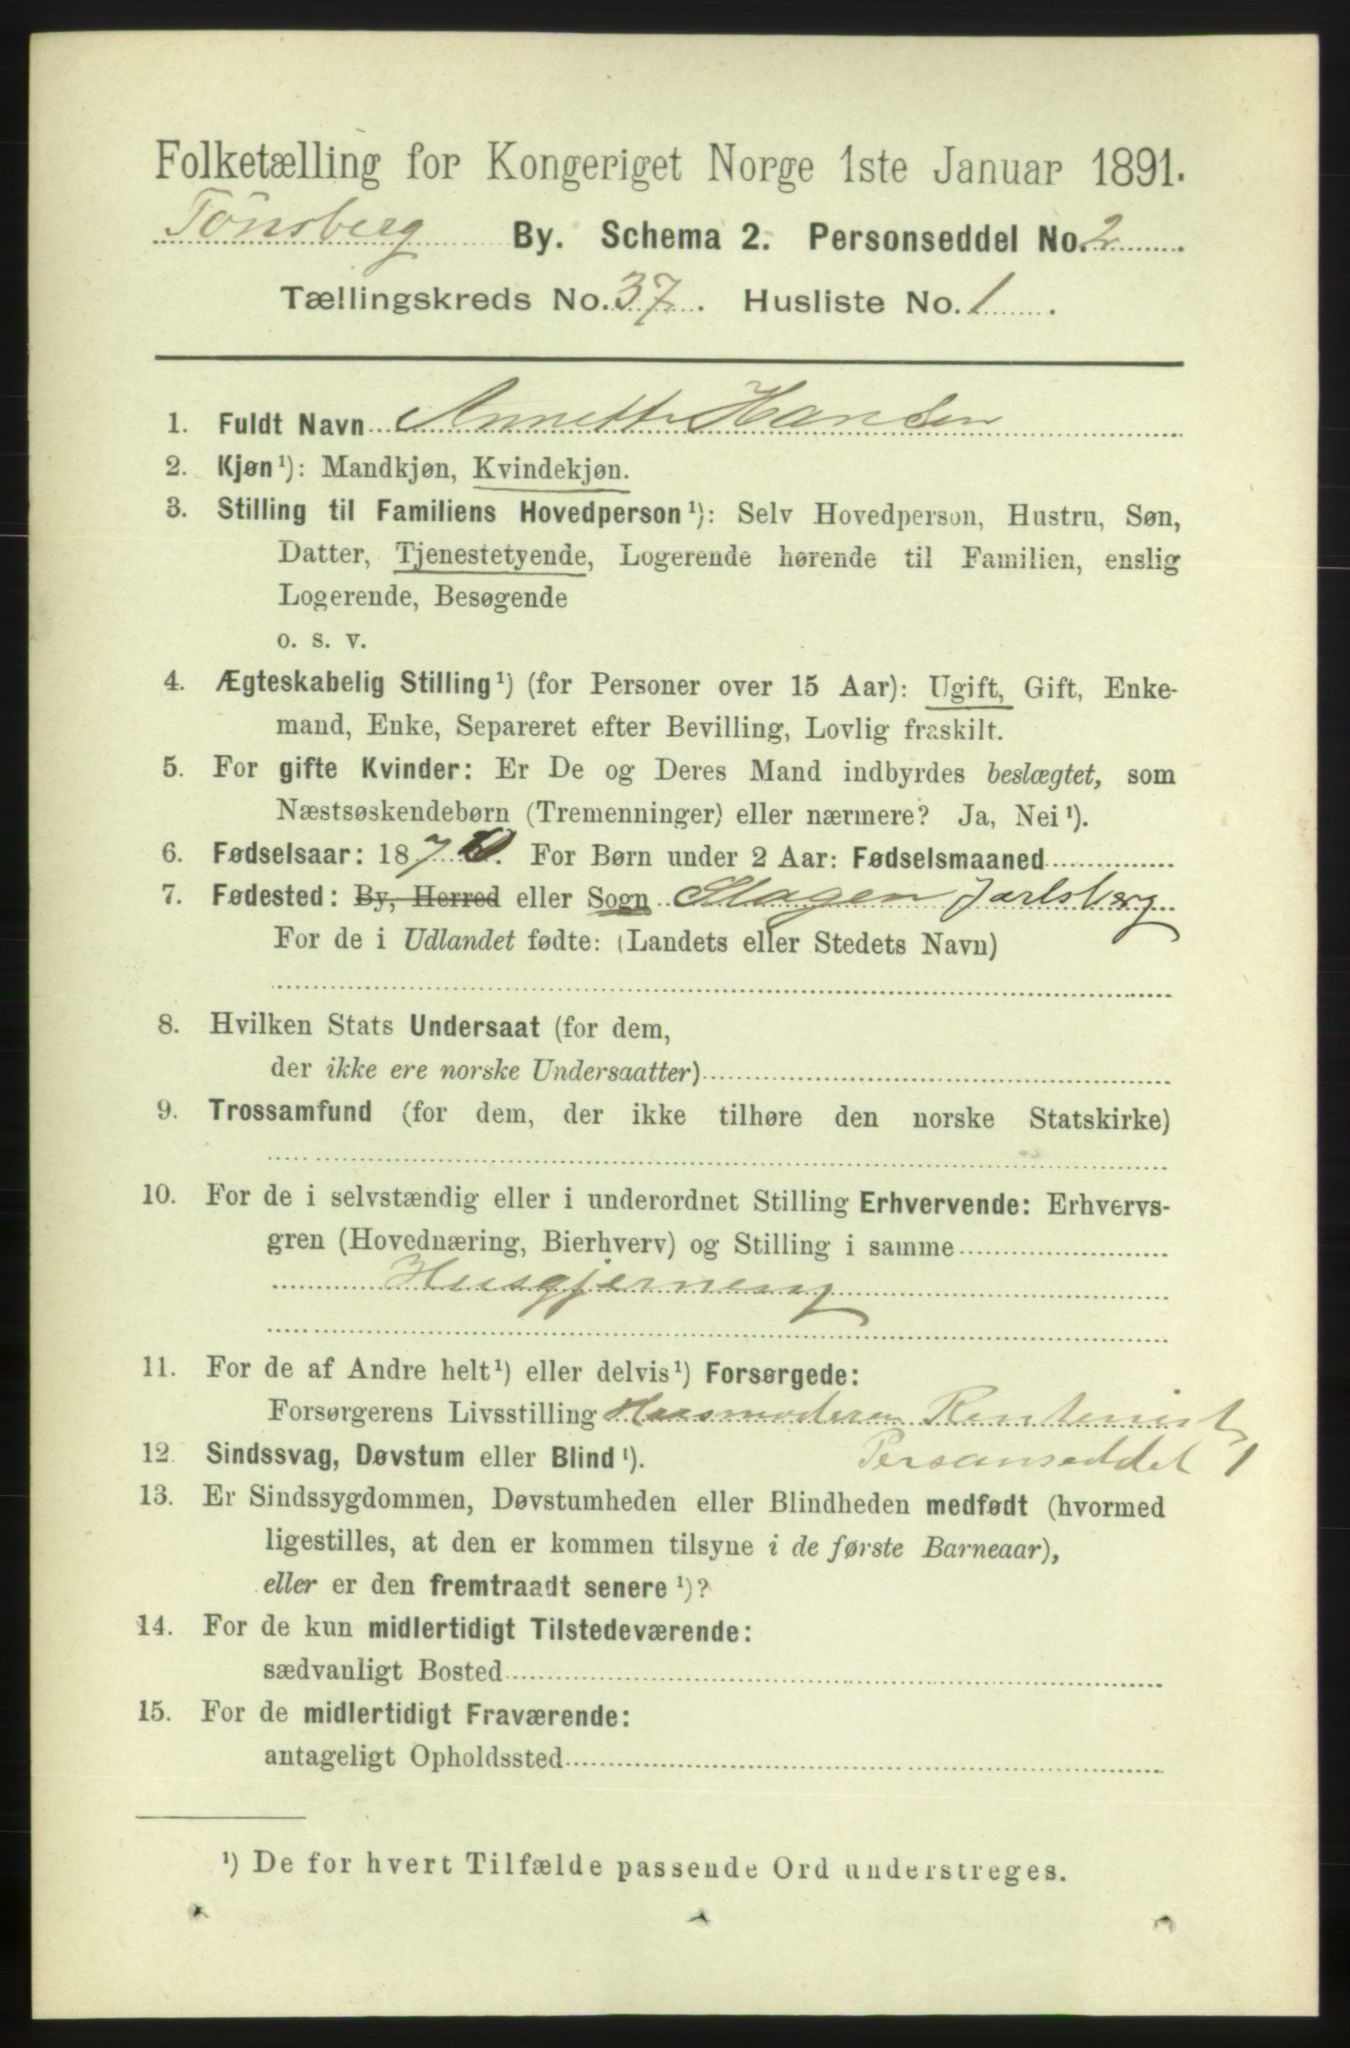 Folketælling for Kongeriget Norge 1ste Januar 1891.
Tønsberg By. Schema 2. Personseddel No. 2
Tællingskreds No. 37. Husliste No. 1.
1. Fuldt Navn Annette Hansen
2. Kjøn¹): Mandkjøn, Kvindekjøn.
3. Stilling til Familiens Hovedperson¹): Selv Hovedperson, Hustru, Søn,
Datter, Tjenestetyende, Logerende hørende til Familien, enslig
Logerende, Besøgende
o. s. v.
4. Ægteskabelig Stilling¹) (for Personer over 15 Aar): Ugift, Gift, Enke-
mand, Enke, Separeret efter Bevilling, Lovlig fraskilt.
5. For gifte Kvinder: Er De og Deres Mand indbyrdes beslægtet, som
Næstsøskendebørn (Tremenninger) eller nærmere? Ja, Nei¹).
6. Fødselsaar: 1870. For Børn under 2 Aar: Fødselsmaaned
7. Fødested: By, Herred eller Sogn Slagen Jarlsberg
For de i Udlandet fødte: (Landets eller Stedets Navn)
8. Hvilken Stats Undersaat (for dem,
der ikke ere norske Undersaatter)
9. Trossamfund (for dem, der ikke tilhøre den norske Statskirke)
10. For de i selvstændig eller i underordnet Stilling Erhvervende: Erhvervs-
gren (Hovednæring, Bierhverv) og Stilling i samme
Husgjerning
11. For de af Andre helt¹) eller delvis¹) Forsørgede:
Forsørgerens Livsstilling Husmoderen Rentenist
Personseddel 1
12. Sindssvag, Døvstum eller Blind¹).
13. Er Sindssygdommen, Døvstumheden eller Blindheden medfødt (hvormed
ligestilles, at den er kommen tilsyne i de første Barneaar),
eller er den fremtraadt senere¹)?
14. For de kun midlertidigt Tilstedeværende:
sædvanligt Bosted
15. For de midlertidigt Fraværende:
antageligt Opholdssted
¹) De for hvert Tilfælde passende Ord understreges.